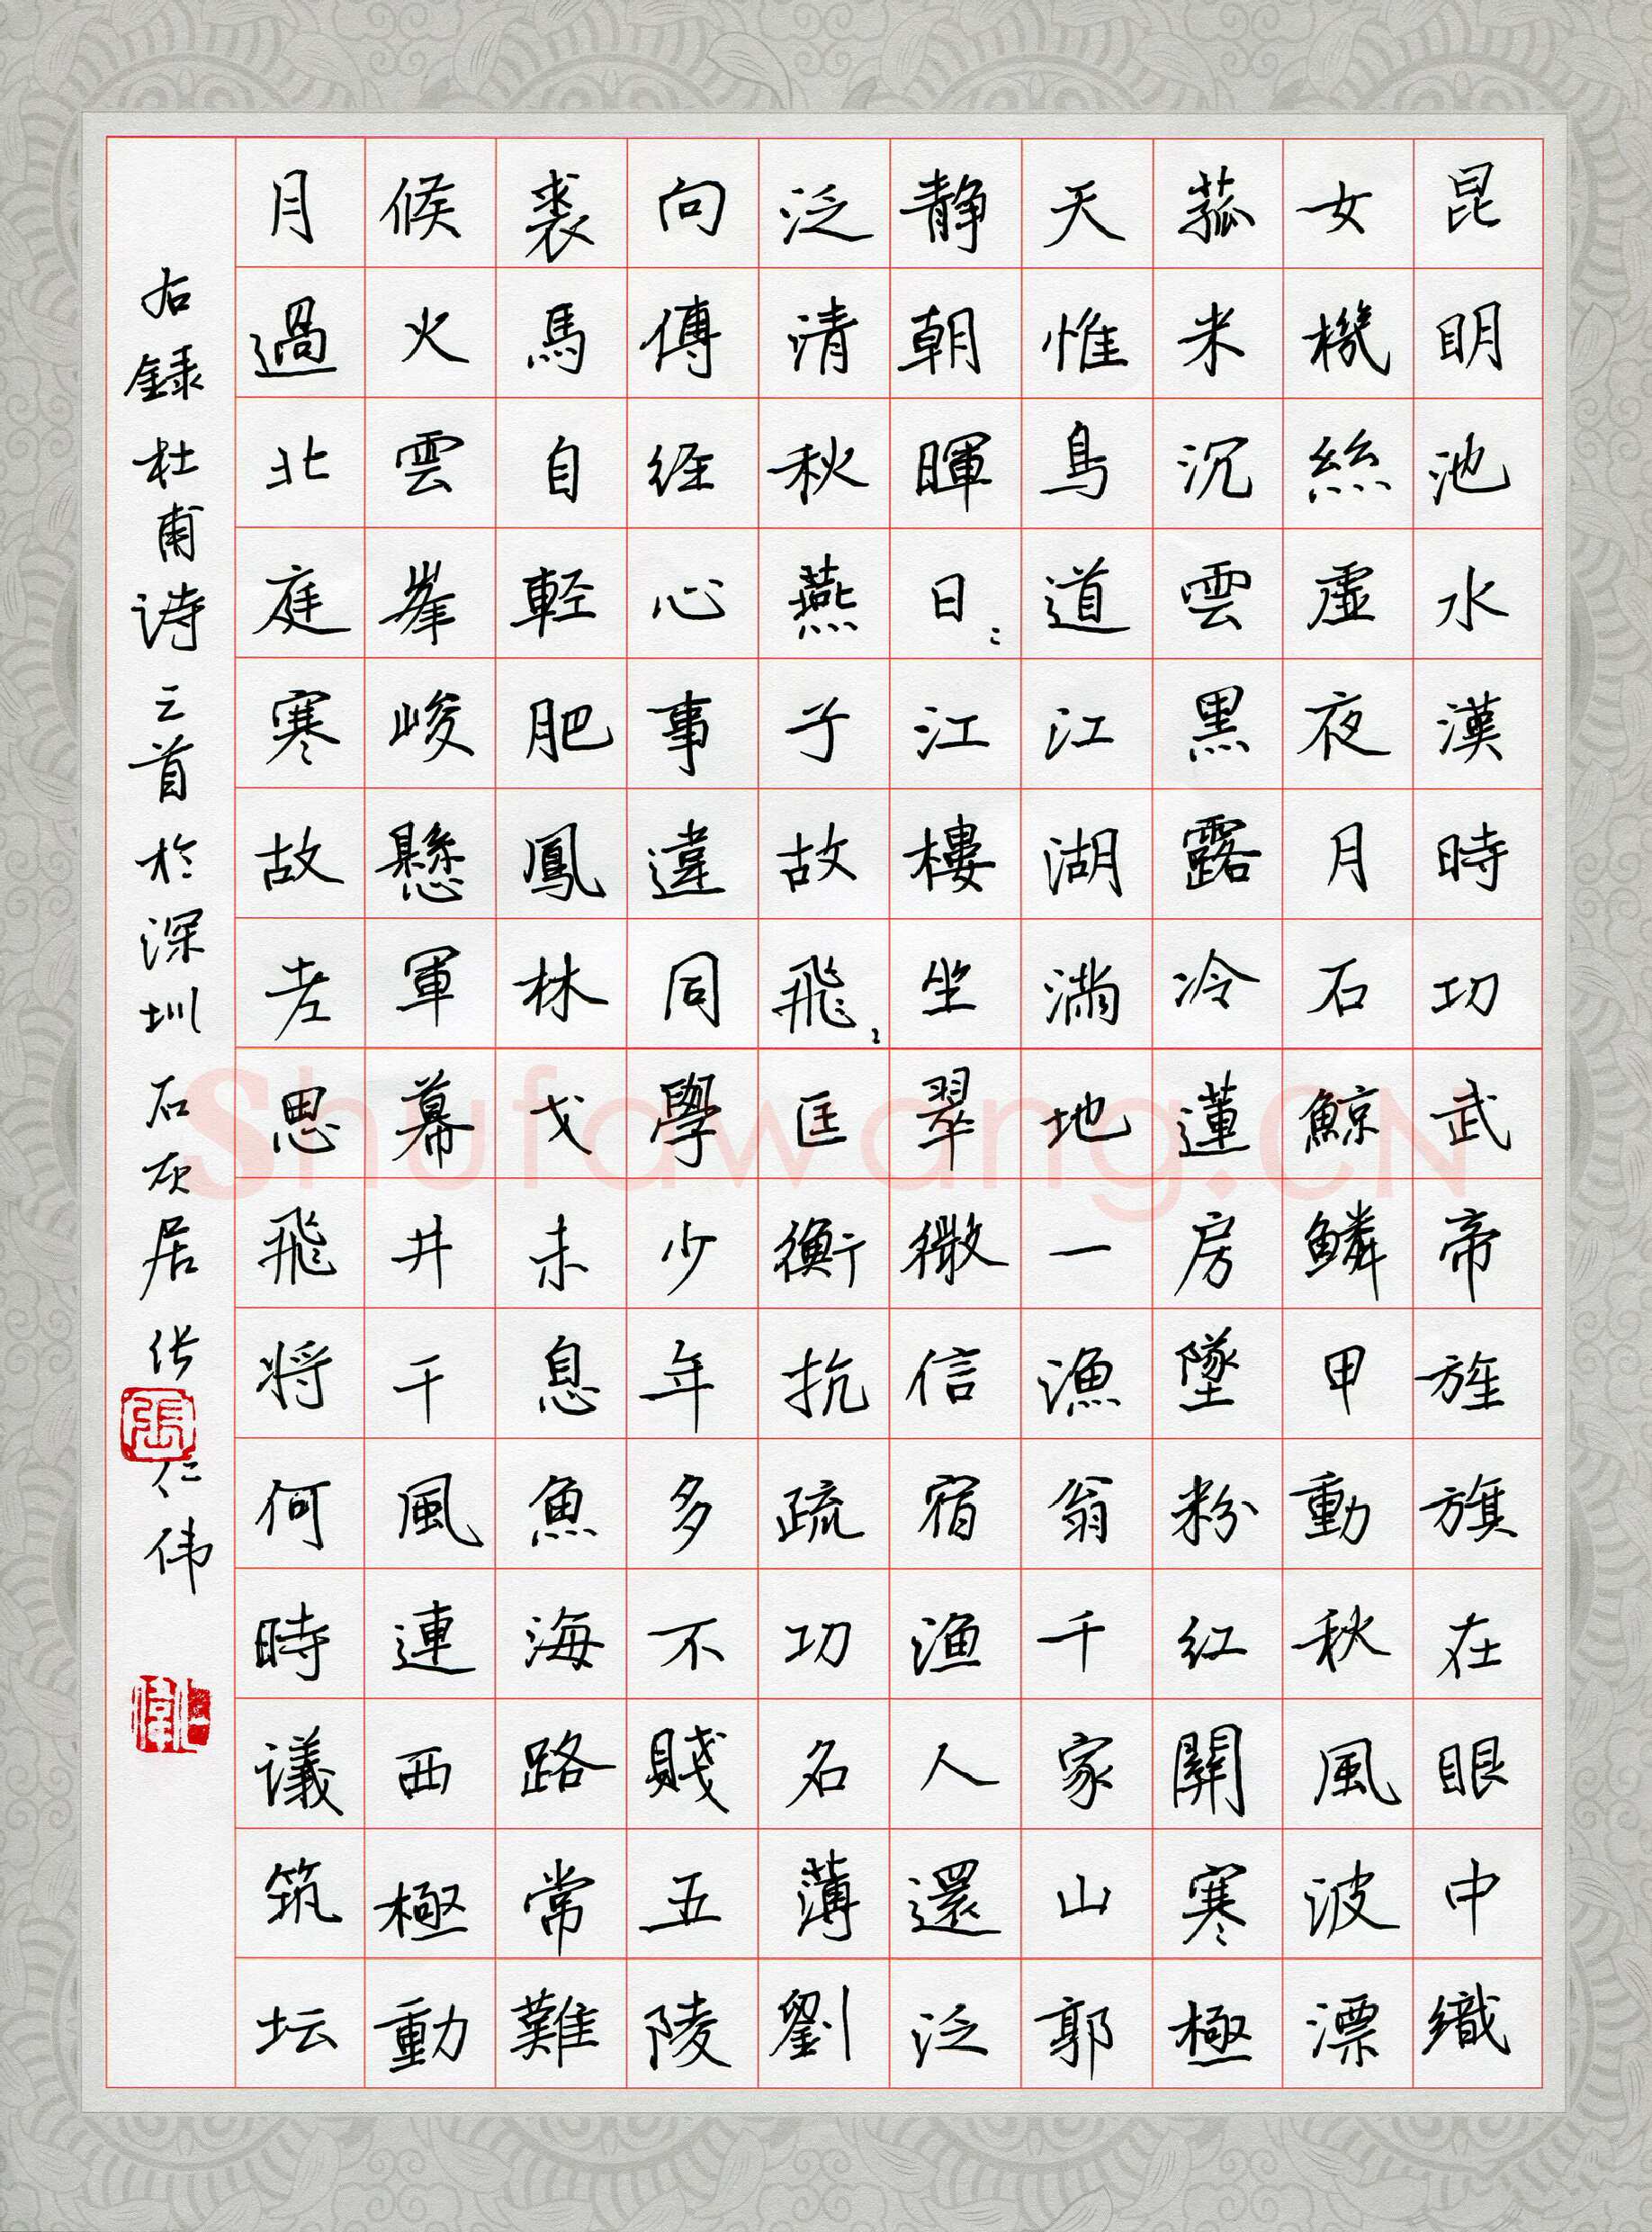 昆明池水漢時功武帝旌旗在眼中織
女機絲虛夜月石鯨鱗甲動秋風波漂
菰米沉雲黑露冷蓮房墜粉紅關寒極
天惟鳥道江湖滿地一漁翁千家山郭
靜朝暉日〻江樓坐翠微信宿漁人還泛
泛清秋燕子故飛〻匡衡抗疏功名薄劉
向傳經心事違同學少年多不賤五陵
裘馬自輕肥鳳林戈未息魚海路常難
候火雲峯峻懸軍幕井干風連西極動
月過北庭寒故老思飛將何時議筑坛
右録杜甫诗三首於深圳石灰居张仁伟
張
仁偉
Shufawang.CN